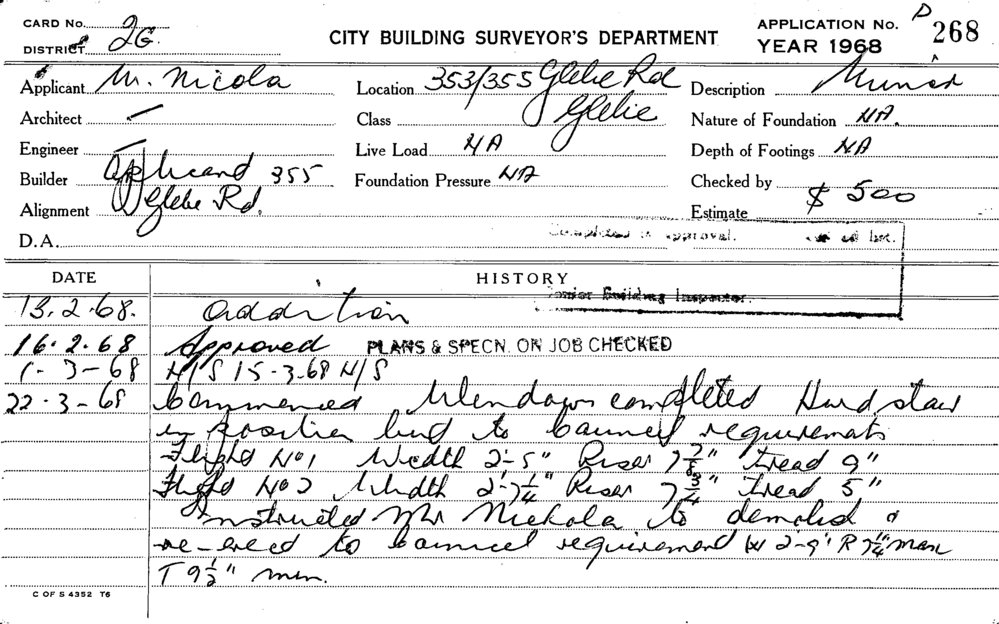 CARD No. 2G.
DISTRICT
CITY BUILDING SURVEYOR'S DEPARTMENT
APPLICATION No. P 268
YEAR 1968
Applicant M. Nicola
Location 353/355 Glebe Rd
Glebe
Description Minor
Architect
Class
Nature of Foundation NA.
Engineer
Live Load NA
Depth of Footings NA
Builder Applicant 355
Glebe Rd.
Foundation Pressure NA
Checked by
Alignment
Estimate $ 500
D.A.
approval.
DATE
HISTORY
Junior Building Inspector.
13.2.68. addition
16.2.68 Approved PLANS & SPECN. ON JOB CHECKED
1-3-68 N/S 15-3.68 N/S
22-3-68 Commenced Windows completed stair
in position but to council requirements
Flight No1 Width 2'-5" Riser 7 7/8" Tread 9"
Flight No2 Width 2'-7 1/4" Riser 7 3/4" Tread 5"
Instructed Mr Nickola to demolish &
re-erect to council requirement W 2-9" R 7 1/4" max
T 9 1/2" min.
C OF S 4352 T6